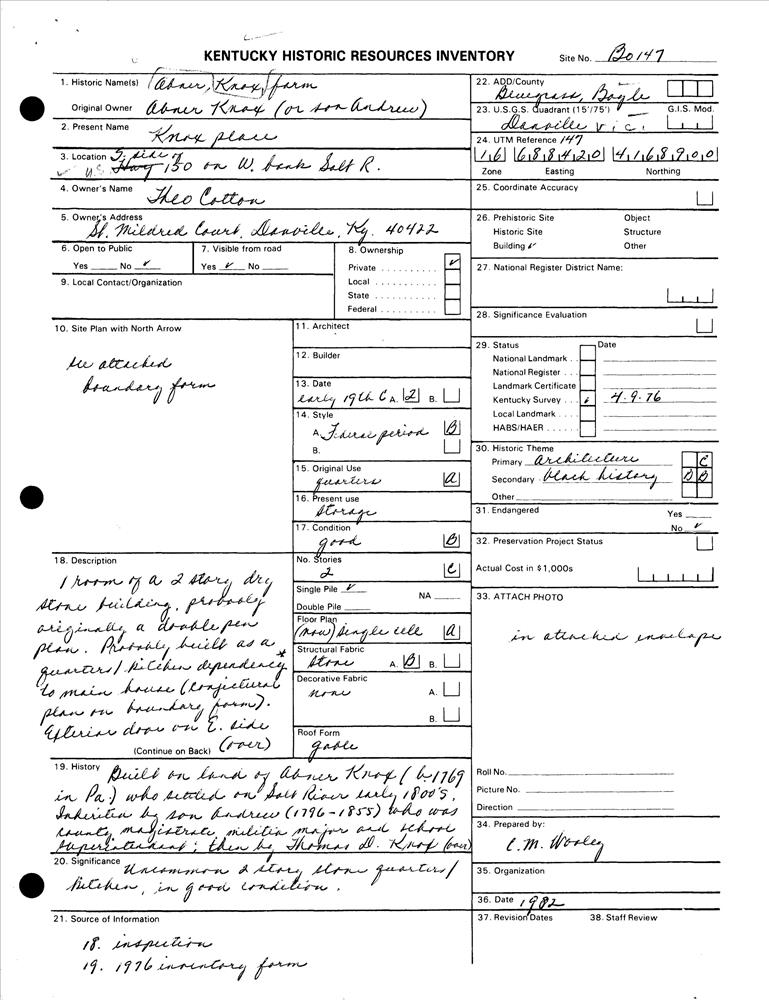 KENTUCKY HISTORIC RESOURCES INVENTORY
Site No. Bo147
1. Historic Name(s) (Abner, Knox, farm
Original Owner Abner Knox (or son Andrew)
2. Present Name Knox place
3. Location S. side of
U.S. Hwy 150 on W. bank Salt R.
4. Owner's Name Theo Cotton
5. Owner's Address
St. Mildred Court, Danville, Ky. 40422
6. Open to Public
Yes No ✓
7. Visible from road
Yes ✓ No
8. Ownership
Private ✓
Local
State
Federal
9. Local Contact/Organization
10. Site Plan with North Arrow
see attached
boundary form
11. Architect
12. Builder
13. Date
early 19th C A. 2 B.
14. Style
A. Federal period B
B.
15. Original Use
quarters A
16. Present use
storage
17. Condition
good B
No. Stories
2 C
Single Pile ✓ NA
Double Pile
Floor Plan
(now) single cell A
Structural Fabric
Stone A. B B.
Decorative Fabric
none A.
B.
Roof Form
gable
18. Description
1 room of a 2 story dry
stone building, probably
originally a double pen
plan. Probably built as a
quarters/kitchen dependency *
to main house (conjectural
plan on boundary form).
Exterior door on E. side
(Continue on Back) (over)
19. History Built on land of Abner Knox (b 1769
in Pa.) who settled on Salt River early 1800's.
Inherited by son Andrew (1796-1855) who was
county magistrate, militia major and school
superintendent; then by Thomas D. Knox (over)
20. Significance Uncommon 2 story stone quarters/
kitchen, in good condition.
21. Source of Information
18. inspection
19. 1976 inventory form
22. ADD/County
Bluegrass, Boyle
23. U.S.G.S. Quadrant (15'/75') G.I.S. Mod.
Danville vic.
24. UTM Reference 147
16 688420 4168900
Zone Easting Northing
25. Coordinate Accuracy
26. Prehistoric Site Object
Historic Site Structure
Building ✓ Other
27. National Register District Name:
28. Significance Evaluation
29. Status Date
National Landmark
National Register
Landmark Certificate
Kentucky Survey ✓ 4.9.76
Local Landmark
HABS/HAER
30. Historic Theme
Primary architecture C
Secondary black history B B
Other
31. Endangered Yes
No ✓
32. Preservation Project Status
Actual Cost in $1,000s
33. ATTACH PHOTO
in attached envelope
Roll No.
Picture No.
Direction
34. Prepared by:
C.M. Wooley
35. Organization
36. Date 1982
37. Revision Dates 38. Staff Review